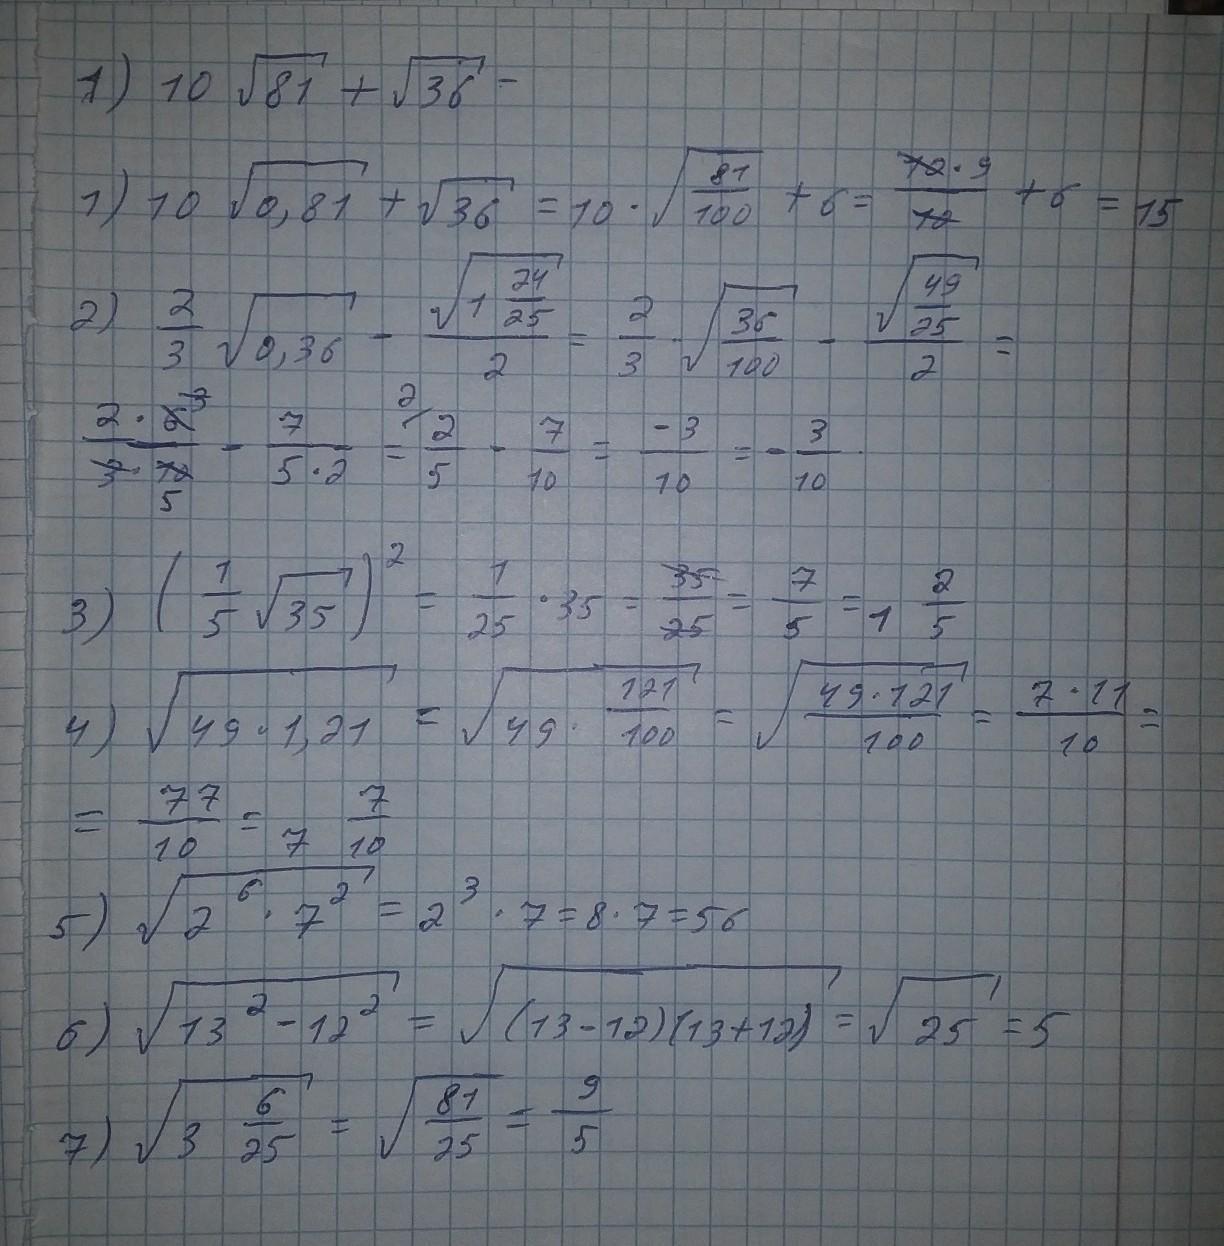 1) 10 √81 + √36 -
1) 10 √0,81 + √36 = 10 · √(81/100) + 6 = (10 · 9)/10 + 6 = 15
2) 2/3 √0,36 - √(1 24/25)/2 = 2/3 · √(36/100) - √(49/25)/2 =
(2 · 6 3)/(3 · 10 5) - 7/(5 · 2) = 2/ 2/5 - 7/10 = -3/10 = - 3/10
3) (1/5 √35)² = 1/25 · 35 = 35/25 = 7/5 = 1 2/5
4) √(49 · 1,21) = √(49 · 121/100) = √((49 · 121)/100) = (7 · 11)/10 =
= 77/10 = 7 7/10
5) √(2⁶ · 7²) = 2³ · 7 = 8 · 7 = 56
6) √(13² - 12²) = √((13-12)(13+12)) = √25 = 5
7) √(3 6/25) = √(81/25) = 9/5